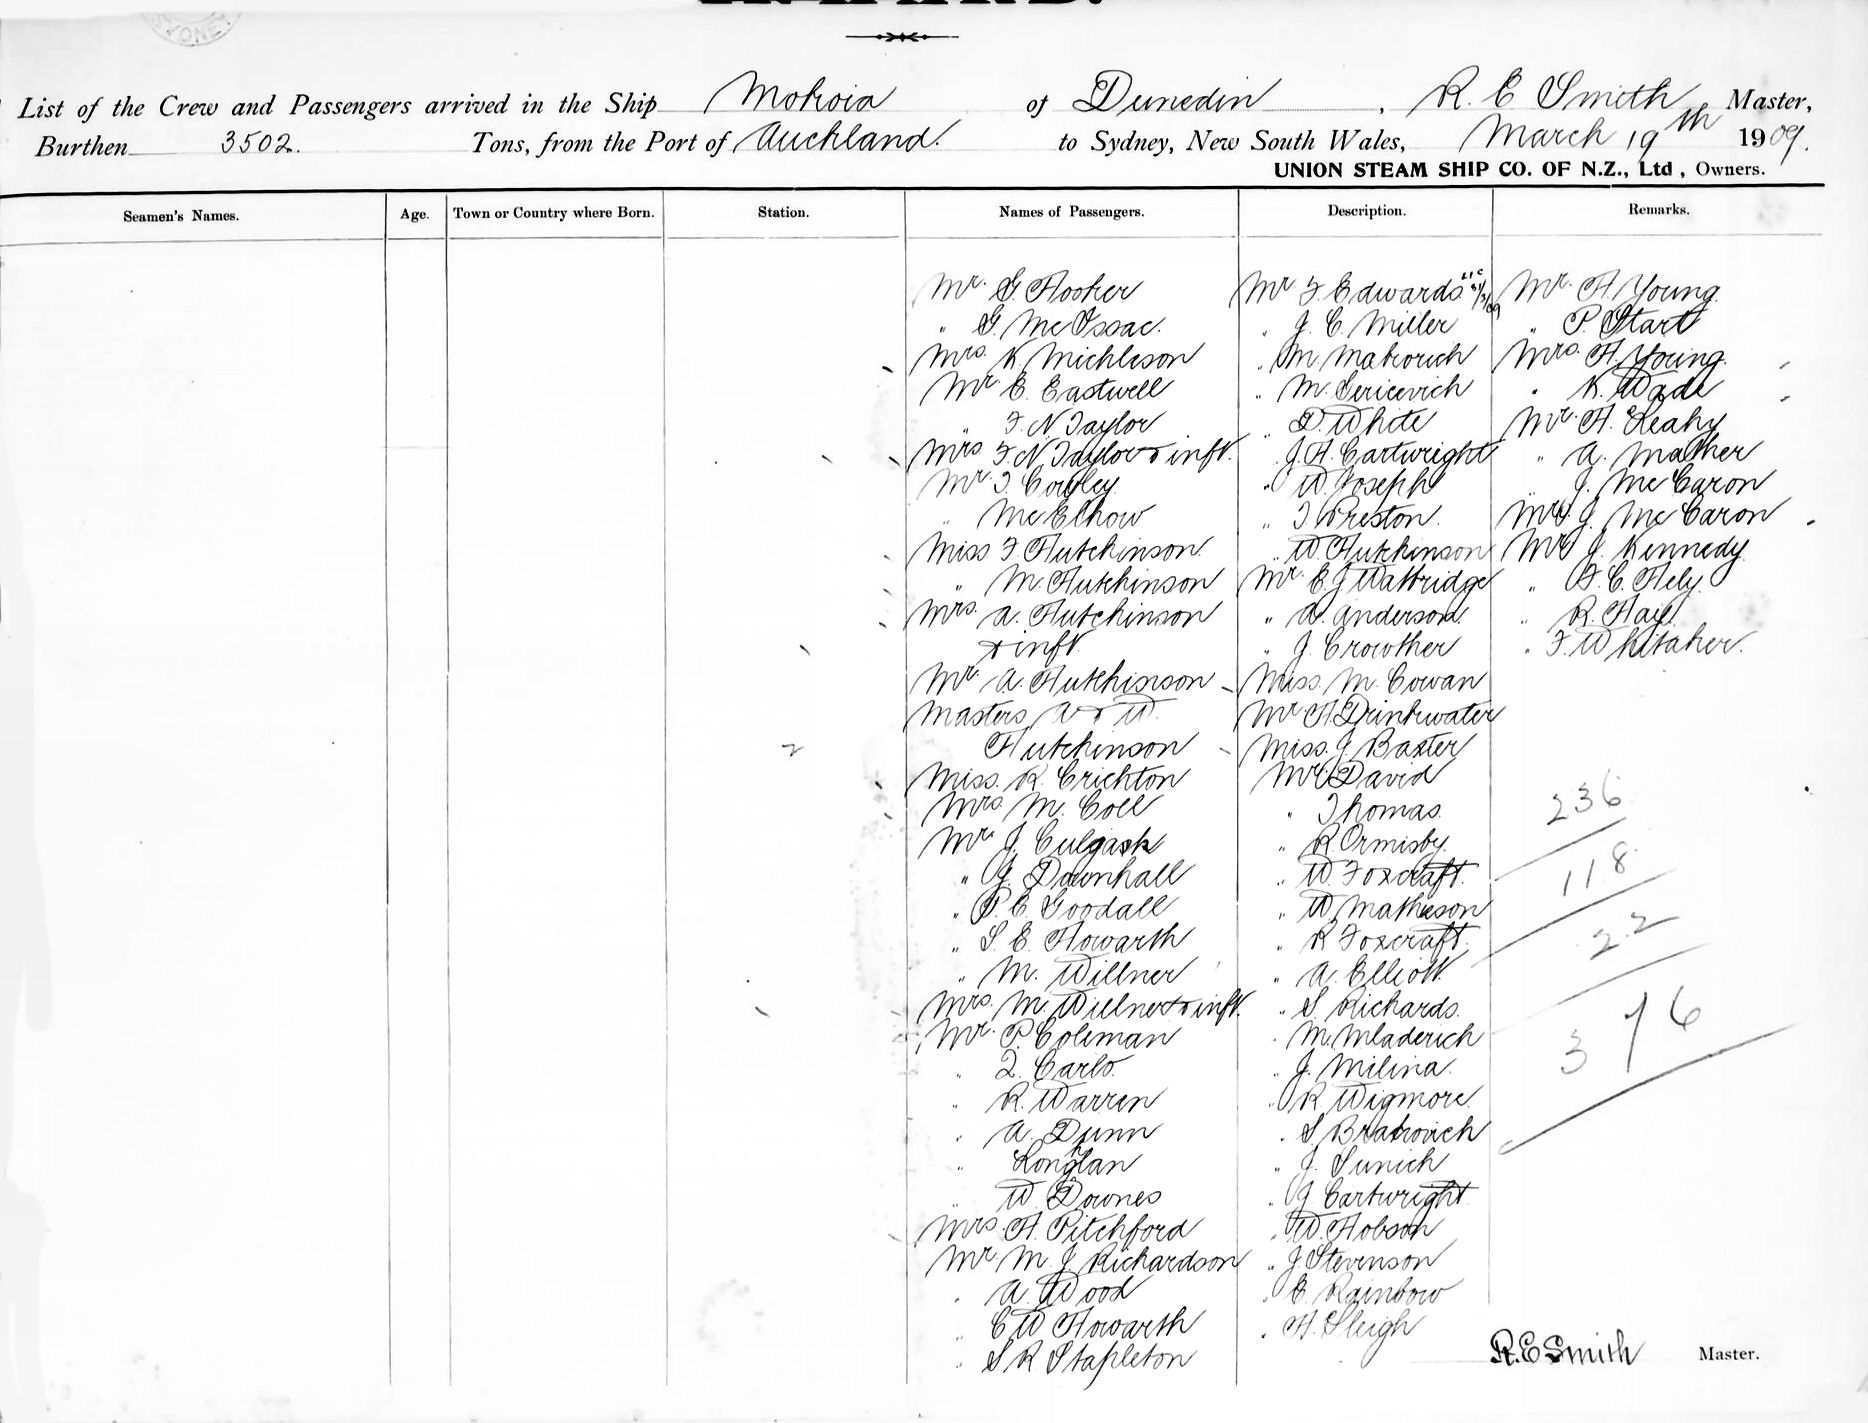 List of the Crew and Passengers arrived in the Ship Mokoia of Dunedin, R. E. Smith Master,
Burthen 3502. Tons, from the Port of Auckland. to Sydney, New South Wales, March 19th 1909.
UNION STEAM SHIP CO. OF N.Z., Ltd, Owners.
Seamen's Names. Age. Town or Country where Born. Station. Names of Passengers. Description. Remarks.
Mr. G. Hooker
" G. McIssac.
Mrs. K. Michleson
Mr. E. Eastwell
" F N Taylor
Mrs. F N Taylor & inft.
Mr. T. Cowley
" McElhow
Miss F. Hutchinson
" M. Hutchinson
Mrs. A. Hutchinson
& inft.
Mr. A. Hutchinson
Masters A & W.
Hutchinson
Miss. R. Crichton
Mrs. M. Coll
Mr. J. Culgask
" G. Downhall
" P. C. Goodall
" S. E. Howarth
" M. Willner
Mrs. M. Willner & inft.
Mr. P. Coleman
" Q. Carlo.
" R. Warren
" A. Dunn
" Longlan
" W. Downes
Mrs. H. Pitchford
Mr. M. J. Richardson
" A. Wood
" C W Howarth
" S R Stapleton
Mr F. Edwards
" J. C. Miller
" M. Makovich
" M. Sericevich
" D. White
J. H. Cartwright
" W. Joseph
" T. Preston.
" W. Hutchinson
Mr. E. J. Wattridge
" A. Anderson.
" J. Crowther
Miss. M. Cowan
Mr H. Drinkwater
Miss. J. Baxter
Mr. David
" Thomas.
" R Ormisby.
" W. Foxcraft.
" W. Matheson
" R Foxcraft.
" A. Elliott.
" S. Richards.
" M. Mladerich
" J. Milina.
" R Wigmore.
" S. Brakovich
" J. Sunich
" G Cartwright
" W. Hobson
" J Stevenson
" E. Rainbow
" H. Sleigh
Mr. H. Young.
" P. Start
Mrs. H. Young.
" K. Wade
Mr. H. Leahy
" A. Mather
" J. McCaron
Mrs. J. McCaron
Mr J. Kennedy.
" F. C. Hely.
" R. Hay.
" F. Whitaker.
236
118
22
376
R.E Smith Master.